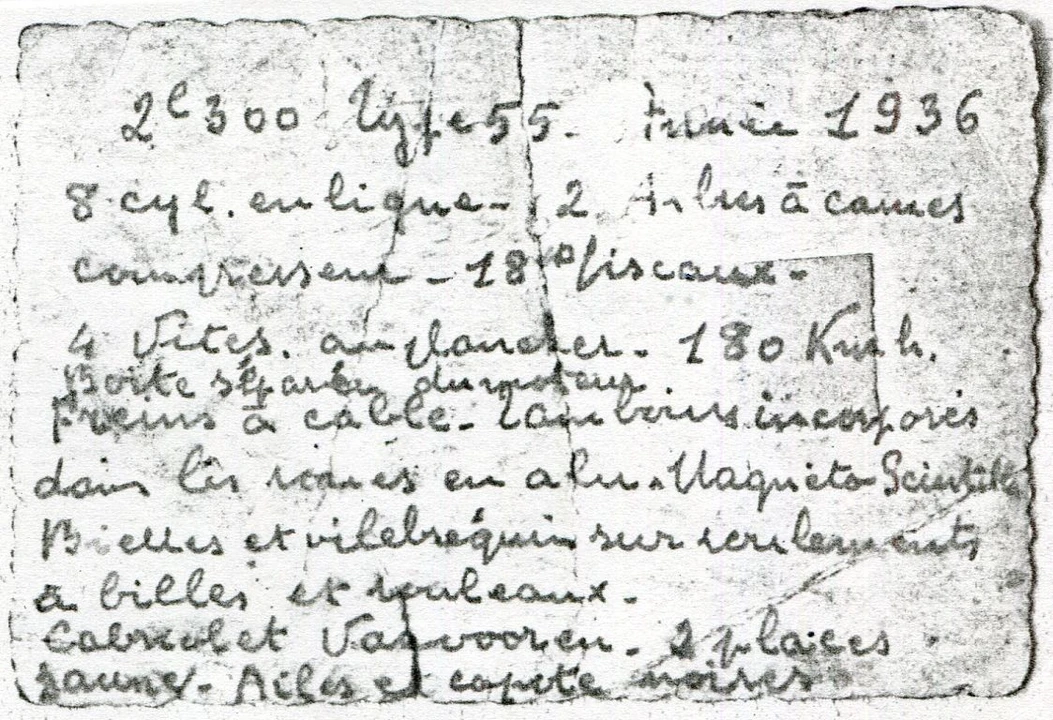 2l 300 Type 55. Année 1936
8 cyl. en ligne - 2 Arbres à cames
compresseur - 18 cv fiscaux -
4 Vites. au plancher - 180 Km h.
Boite séparée du moteur.
Freins à cable - Tambours incorporés
dans les roues en alu. Magneto Scintilla
Bielles et vilebréquin sur roulements
à billes et rouleaux -
Cabriolet Vanvooren - 2 places
Jaune - Ailes et capote noires